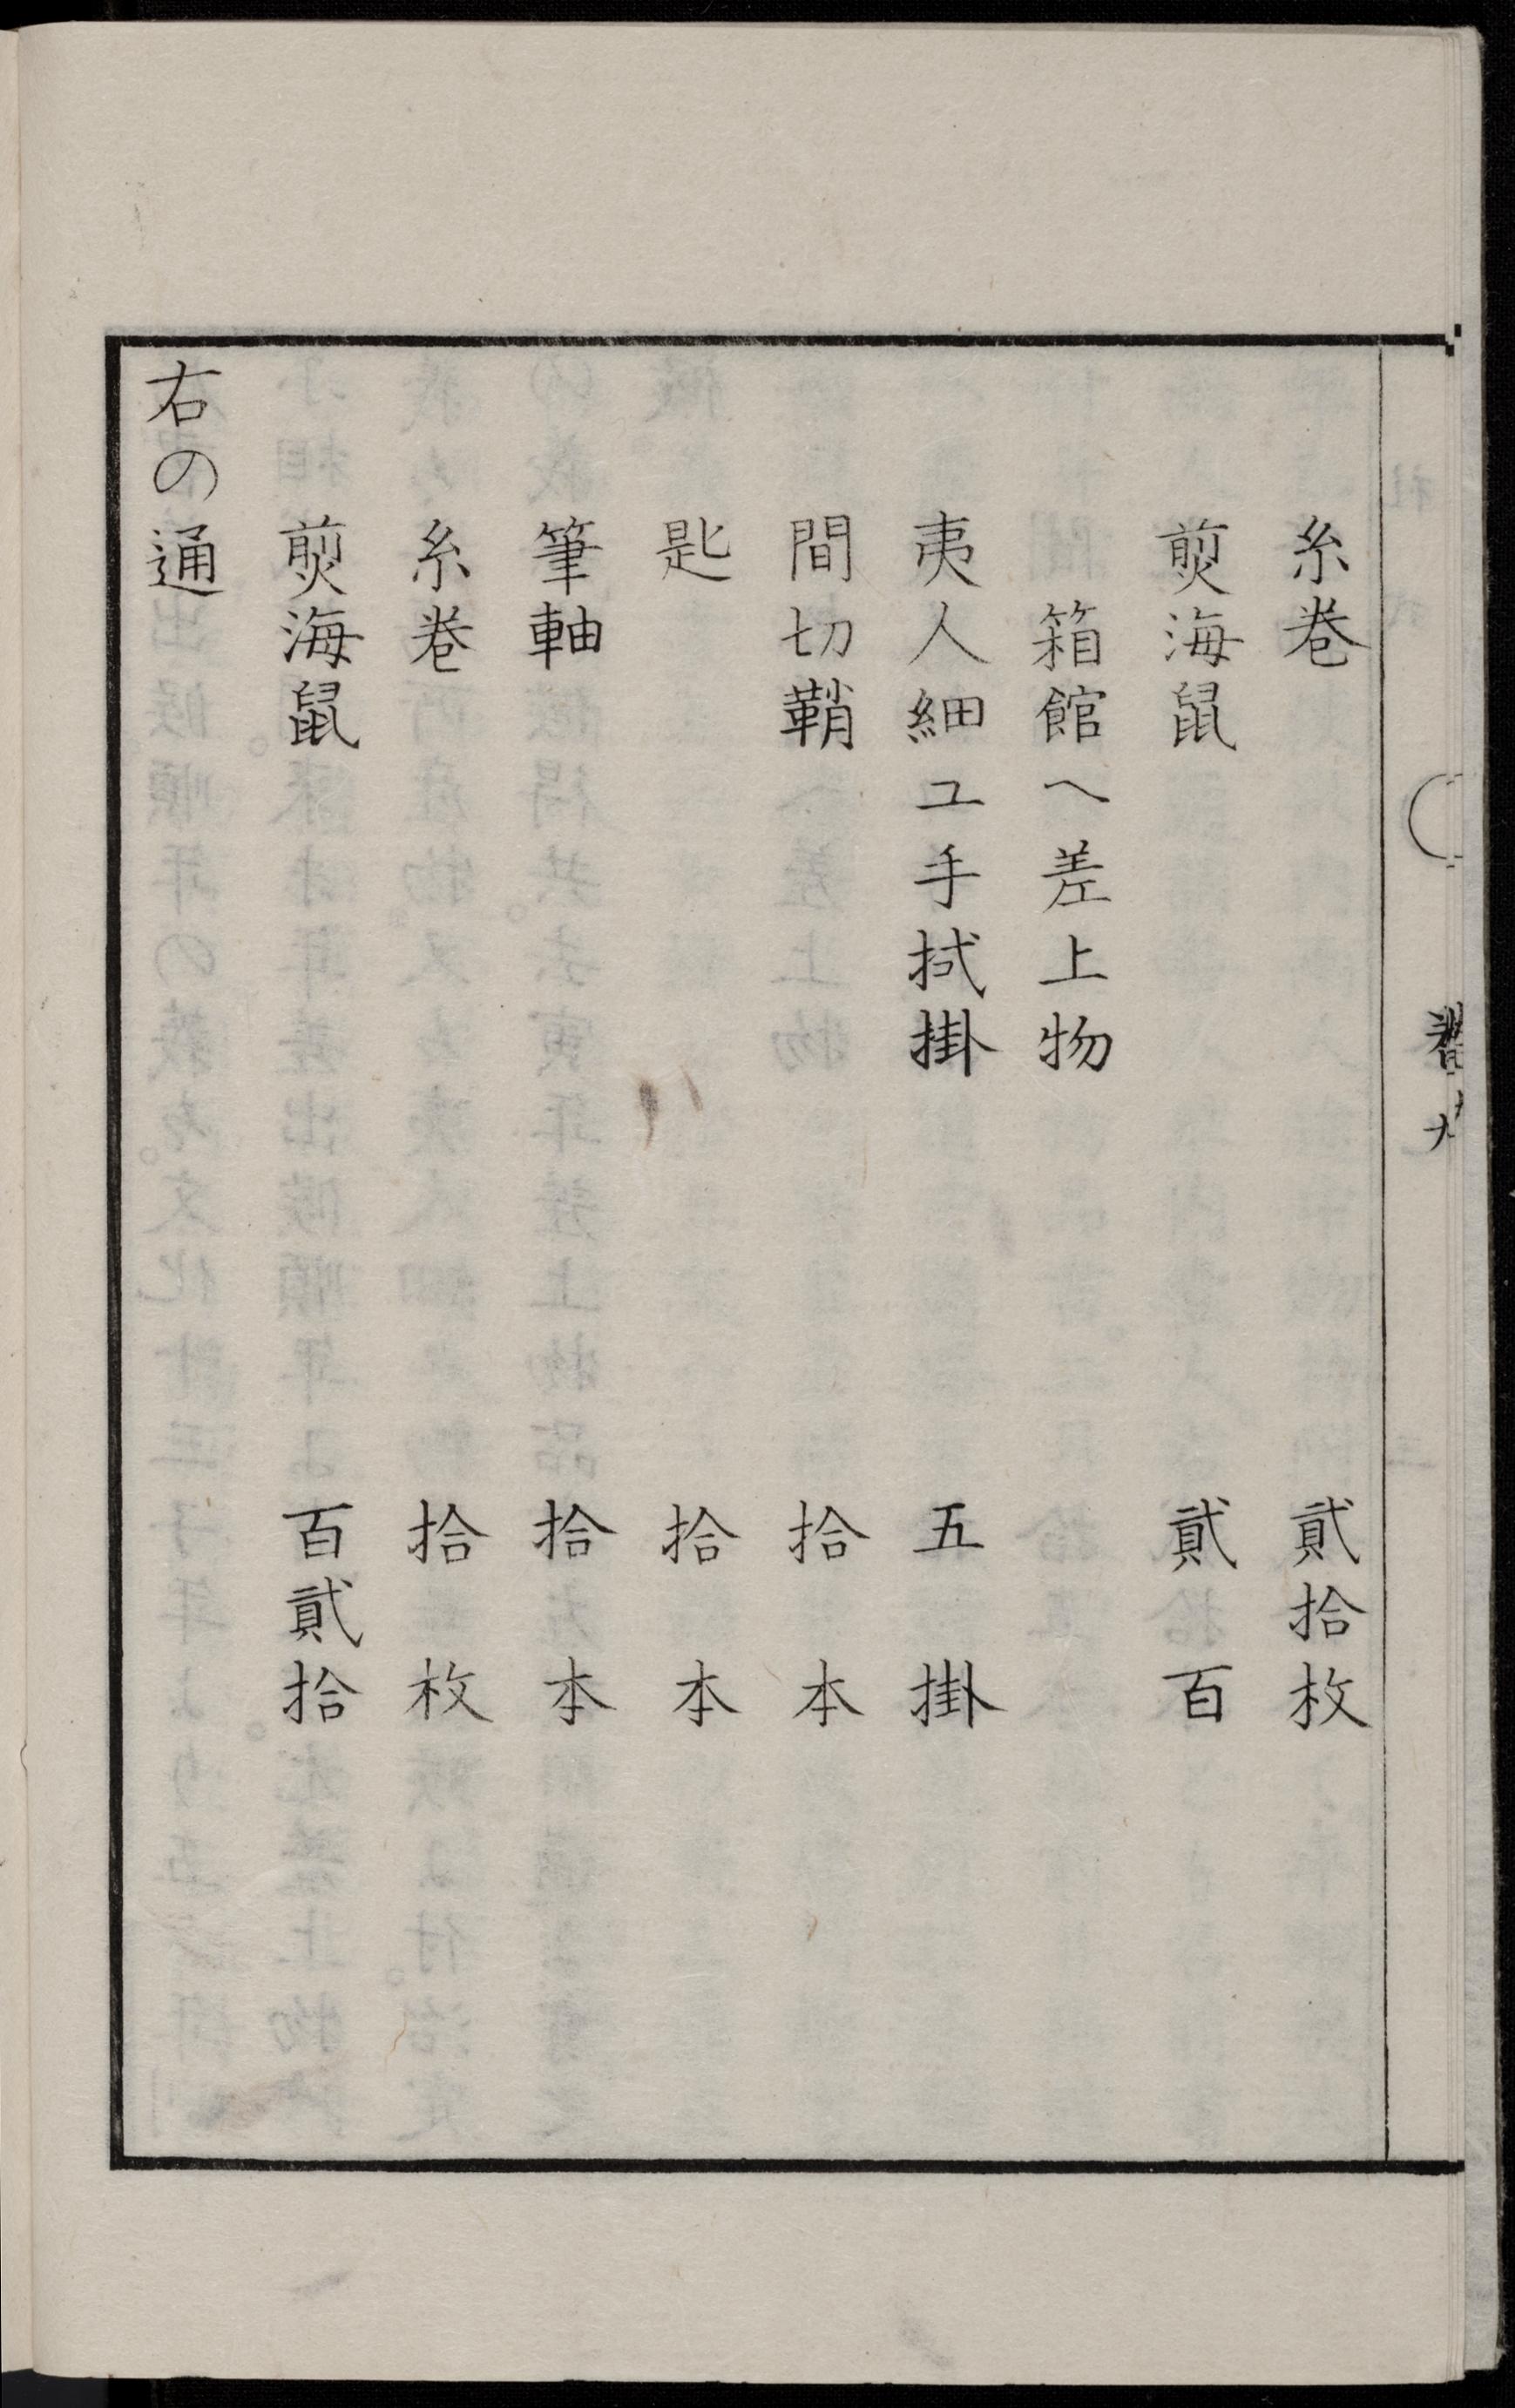 糸巻 貳拾枚
煎海鼠 貳百
箱館へ差上物
夷人細工手拭掛 五掛
間切鞘 拾本
匙 拾本
筆軸 拾本
糸巻 拾枚
煎海鼠 百貳拾
右の通